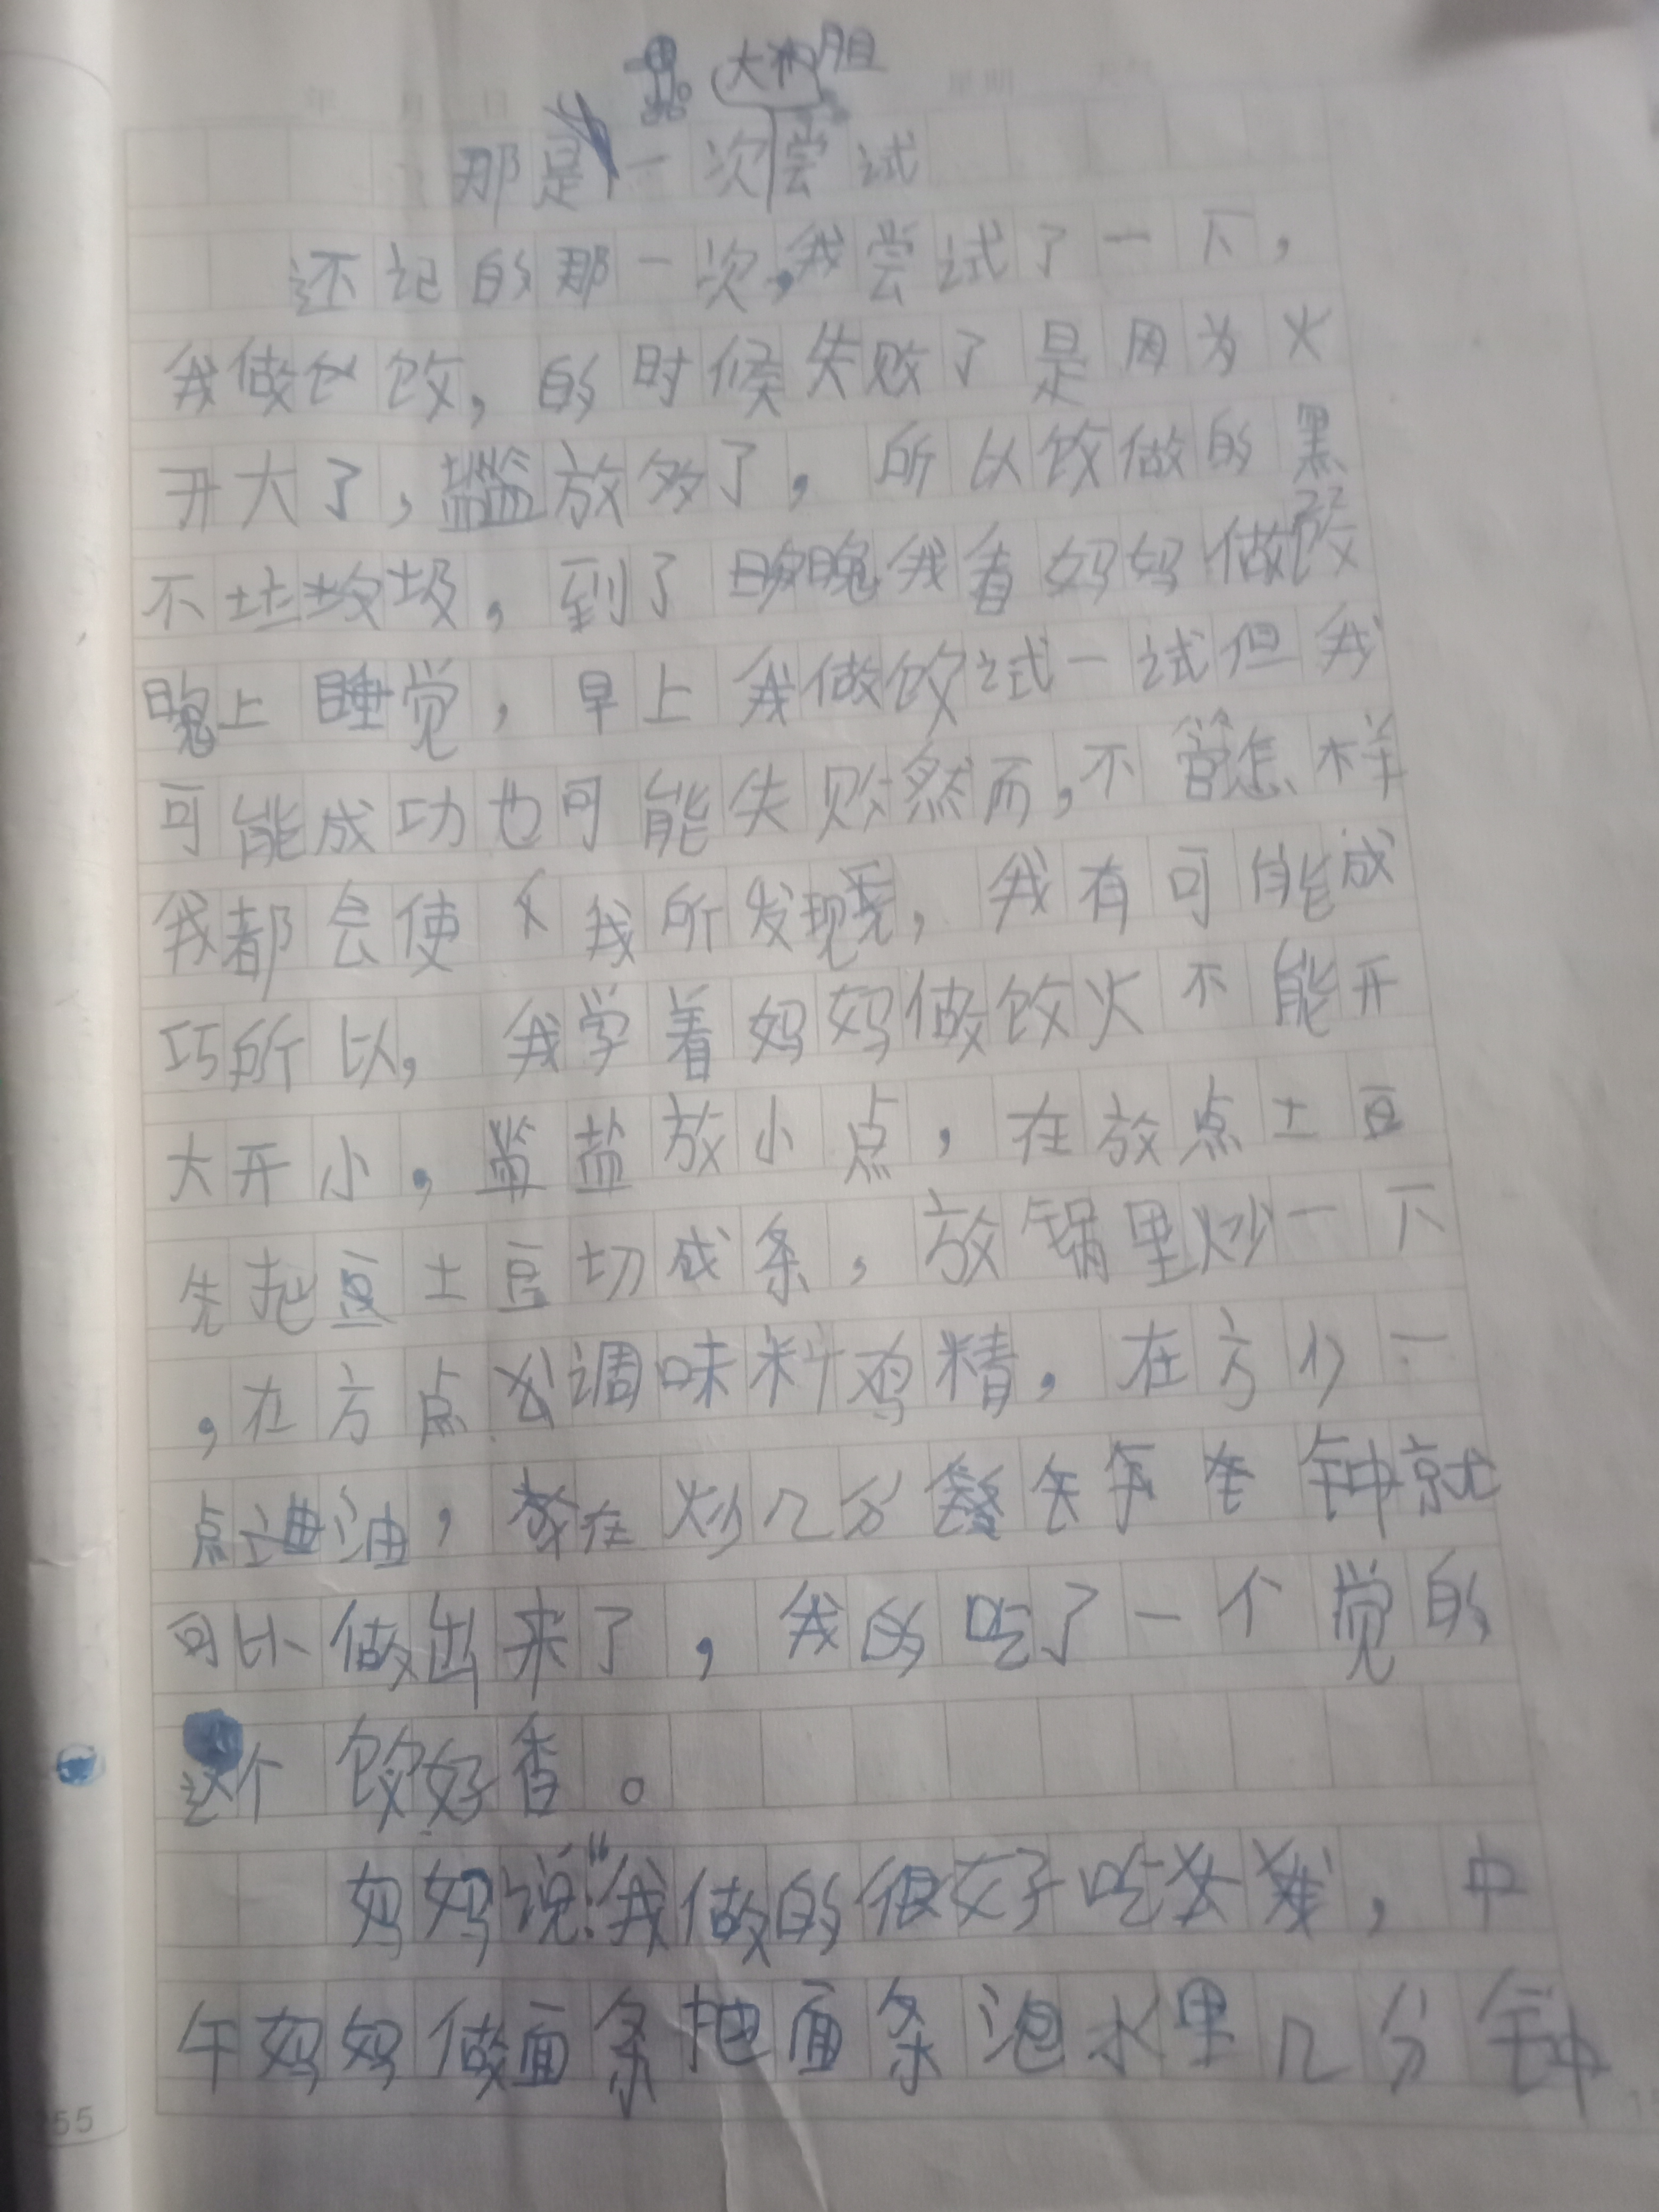 大胆
那是一次尝试
还记的那一次,我尝试了一下,
我做饮,的时候失败了是因为火
开大了,盐放多了,所以饮做的黑
不垃圾,到了晚我看妈妈做饮
晚上睡觉,早上我做饮试一试但我
可能成功也可能失败然而,不管怎样
我都会使我所发现,我有可能成
巧所以,我学着妈妈做饮火不能开
大开小,盐放小点,在放点土豆
先把土豆切成条,放锅里炒一下
,在方点调味料鸡精,在方一
点油,在炒几分钟就
可以做出来了,我吃了一个觉的
这个饮好香。
妈妈说:“我做的很好吃,中
午妈妈做面条把面条泡水里几分钟
55